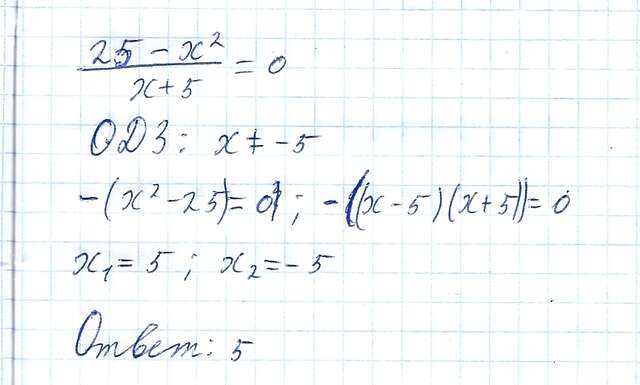 25 - x² / x + 5 = 0
ОДЗ: x ≠ -5
-(x² - 25) = 0; -((x - 5)(x + 5)) = 0
x₁ = 5; x₂ = -5
Ответ: 5